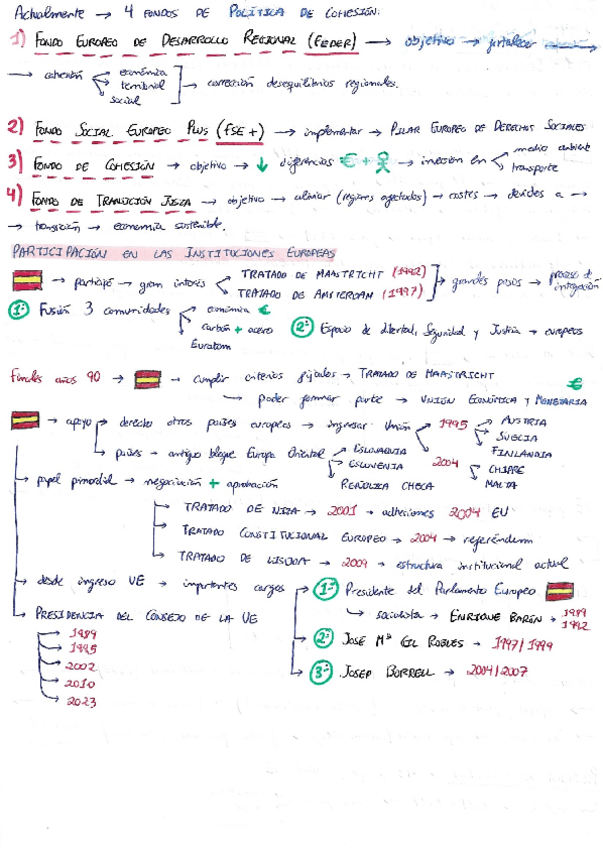 Actualmente → 4 FONDOS DE POLÍTICA DE COHESIÓN:
1) FONDO EUROPEO DE DESARROLLO REGIONAL (FEDER) → objetivo → fortalecer →
→ cohesión económica
territorial
social → corrección desequilibrios regionales.
2) FONDO SOCIAL EUROPEO PLUS (FSE+) → implementar → PILAR EUROPEO DE DERECHOS SOCIALES
3) FONDO DE COHESIÓN → objetivo → ↓ diferencias € + → inversión en medio ambiente
transporte
4) FONDO DE TRANSICIÓN JUSTA → objetivo → aliviar (regiones afectadas) → costes → devidos a →
→ transición → economía sostenible.
PARTICIPACIÓN EN LAS INSTITUCIONES EUROPEAS
→ participó → gran interés TRATADO DE MAASTRICHT (1992)
TRATADO DE AMSTERDAM (1997) → grandes pasos → proceso de integración
1º Fusión 3 comunidades economía €
carbón + acero
Euratom
2º Espacio de libertad, Seguridad y Justicia → europeos
Finales años 90 → → cumplir criterios fijados → TRATADO DE MAASTRICHT
→ poder formar parte → UNIÓN ECONÓMICA Y MONETARIA €
→ apoyo → derecho otros países europeos → ingresar Unión 1995 AUSTRIA
SUECIA
FINLANDIA
países → antiguo bloque Europa Oriental ESLOVAQUIA
ESLOVENIA
REPÚBLICA CHECA
2004 CHIPRE
MALTA
→ papel primordial → negociación + aprobación
→ TRATADO DE NIZA → 2001 → adhesiones 2004 EU
→ TRATADO CONSTITUCIONAL EUROPEO → 2004 → referéndum
→ TRATADO DE LISBOA → 2009 → estructura institucional actual
→ desde ingreso UE → importantes cargos
1º Presidente del Parlamento Europeo
→ socialista → ENRIQUE BARÓN → 1989
1992
2º JOSÉ Mª GIL ROBLES → 1997/1999
3º JOSEP BORRELL → 2004/2007
→ PRESIDENCIA DEL CONSEJO DE LA UE
→ 1989
→ 1995
→ 2002
→ 2010
→ 2023